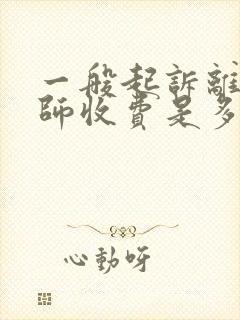 一般起訴離
師收費是多
心動呀